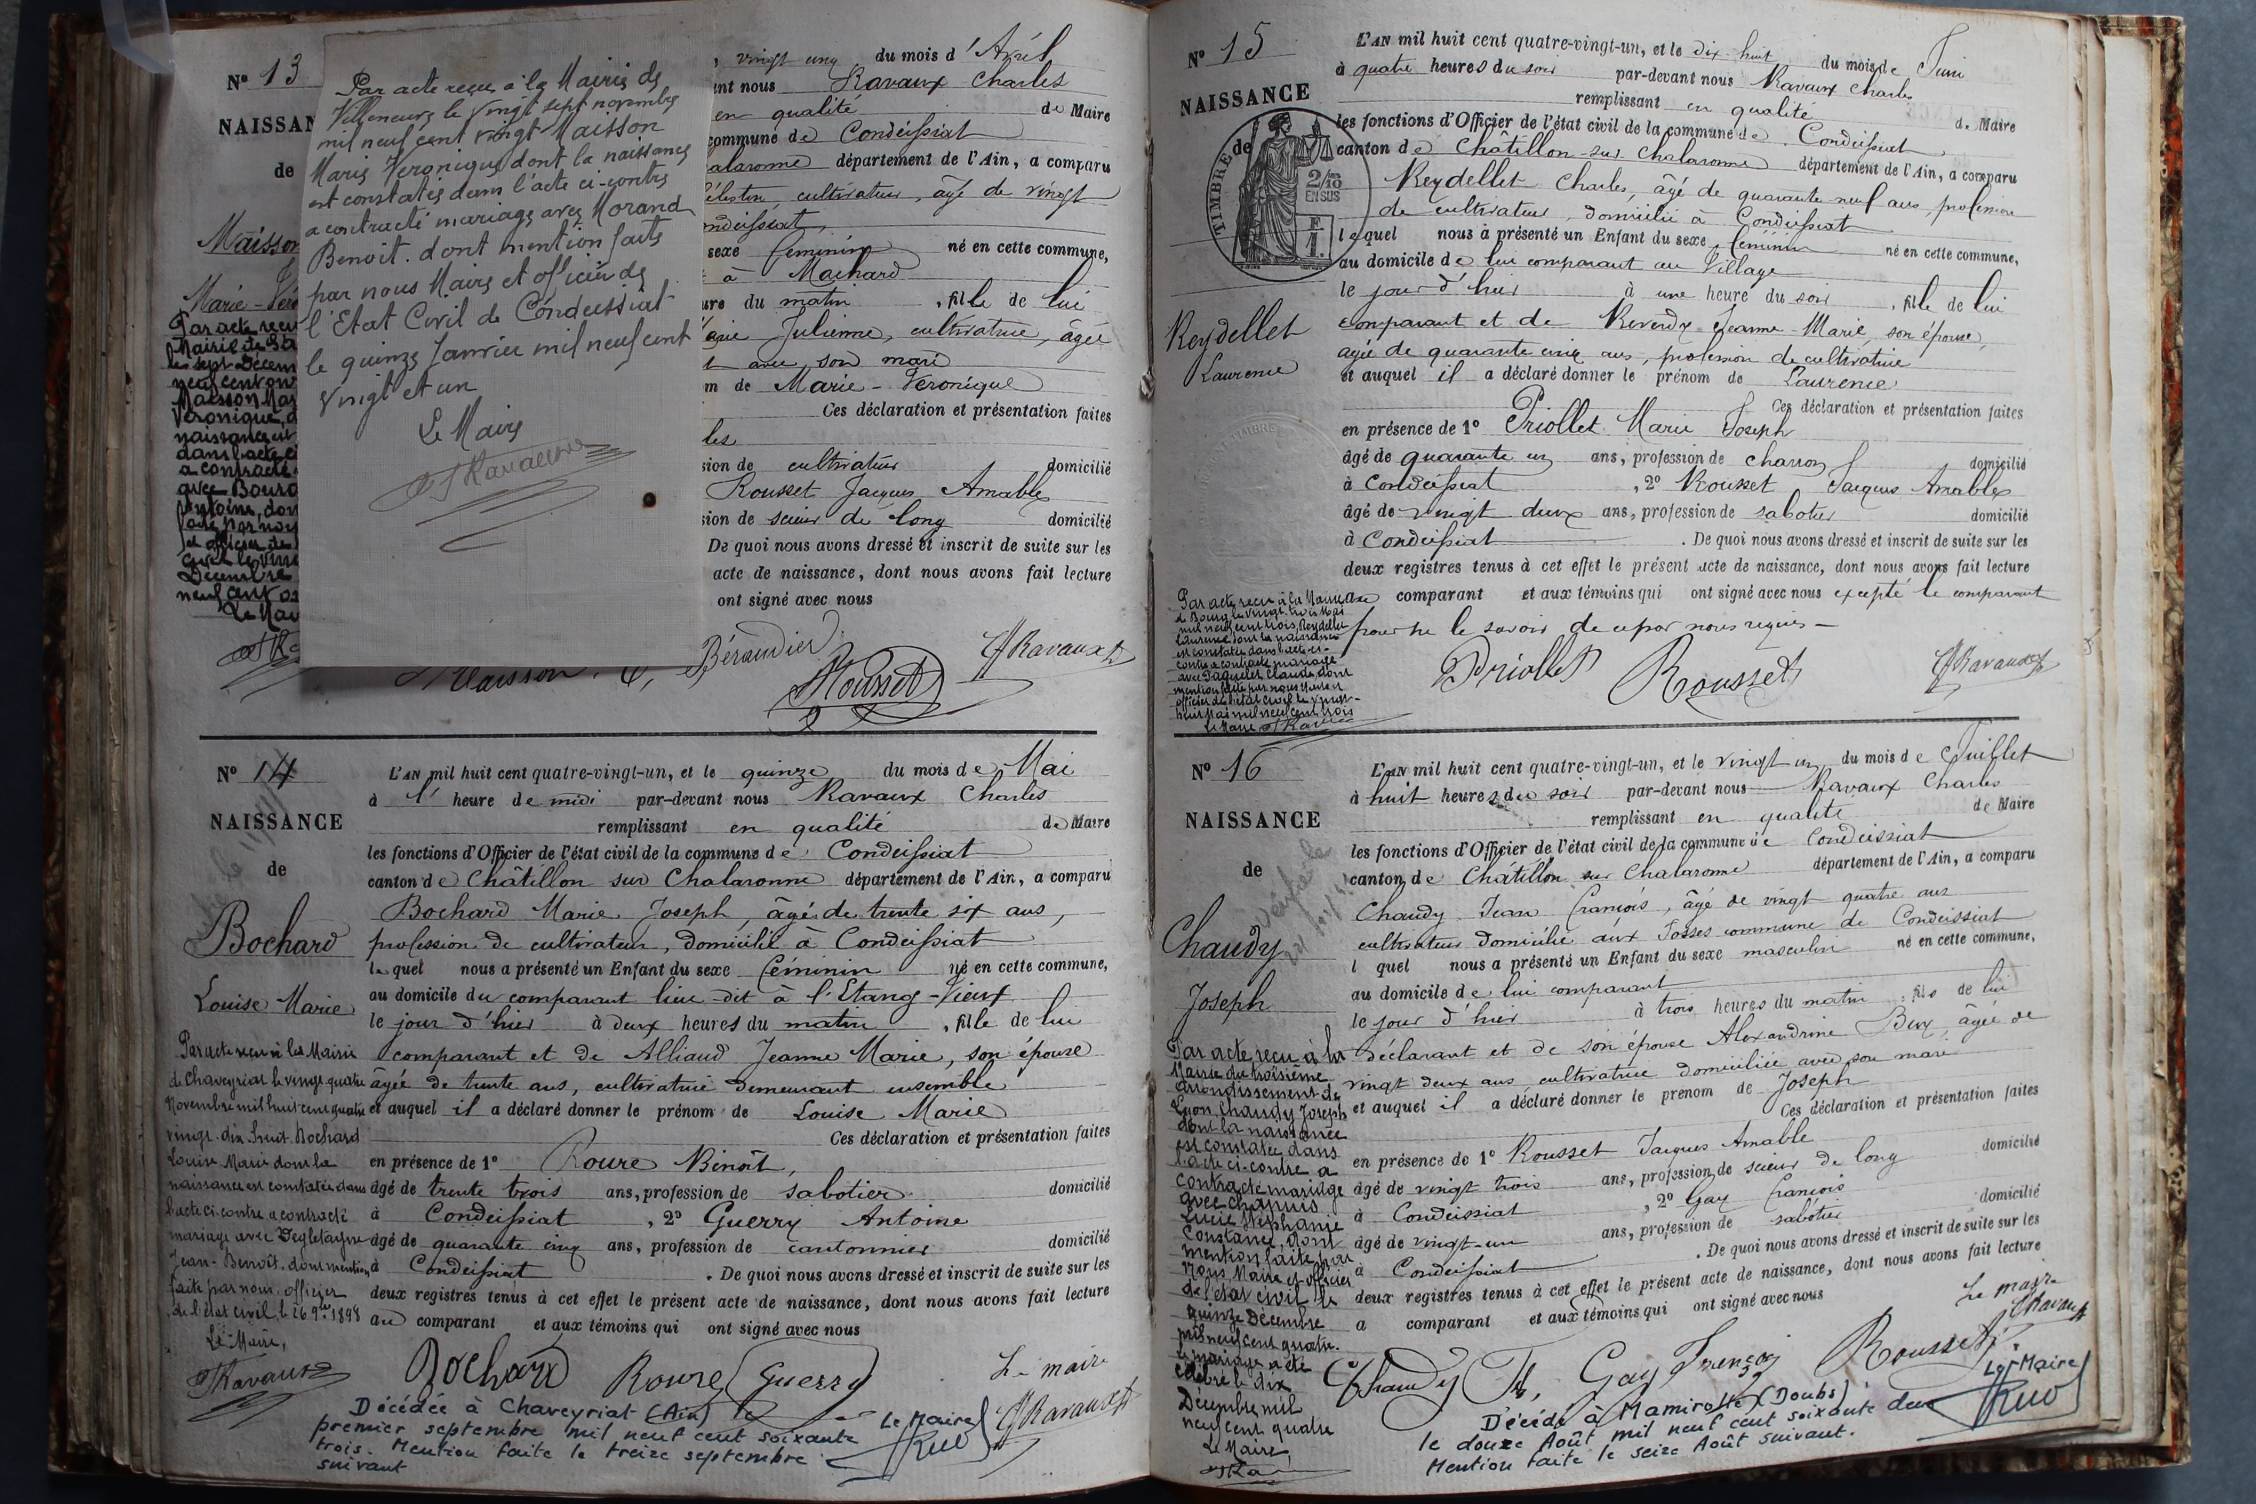 Nº 13
NAISSAN
de
Maisson
Marie-Véro
Par acte reçu
Mairie de
le sept Décem
neuf cent on
Maisson Mar
Véronique, d
naissance est
dans l'acte ci
a contracté
avec Bourg
Antoine, don
faite par nous
et officier de
civil le vingt
Décembre
neuf cent on
Le Mai
Par acte reçu à la Mairie de
Villeneuve le vingt sept novembre
mil neuf cent vingt Maisson
Marie Veronique dont la naissance
est constatée dans l'acte ci-contre
a contracté mariage avec Morand
Benoit. dont mention faite
par nous Maire et officier de
l'Etat Civil de Condeissiat
le quinze Janvier mil neuf cent
vingt et un
Le Maire
Ravaux
vingt cinq du mois d'Avril
ant nous Ravaux Charles
en qualité de Maire
commune de Condeissiat
alaronne département de l'Ain, a comparu
élestin, cultivateur, âgé de vingt
ondeissiat,
sexe féminin né en cette commune,
à Machard
ure du matin, fille de lui
arie Julienne, cultivatrice, âgée
t avec son mari
m de Marie-Véronique
Ces déclaration et présentation faites
les
sion de cultivateur domicilié
Rousset Jacques Amable
sion de scieur de long domicilié
De quoi nous avons dressé et inscrit de suite sur les
acte de naissance, dont nous avons fait lecture
ont signé avec nous
Maisson. C, Béraudier Rousset Ravaux
Nº 14
NAISSANCE
de
Bochard
Louise Marie
L'AN mil huit cent quatre-vingt-un, et le quinze du mois de Mai
à l' heure de midi par-devant nous Ravaux Charles
remplissant en qualité de Maire
les fonctions d'Officier de l'état civil de la commune de Condeissiat
canton de Châtillon sur Chalaronne département de l'Ain, a comparu
Bochard Marie Joseph, âgé de trente six ans,
profession de cultivateur, domicilié à Condeissiat
lequel nous a présenté un Enfant du sexe féminin né en cette commune,
au domicile du comparant lieu-dit à l'Etang-Vieux
le jour d'hier à deux heures du matin, fille de lui
comparant et de Alliaud Jeanne Marie, son épouse
âgée de trente ans, cultivatrice demeurant ensemble
et auquel il a déclaré donner le prénom de Louise Marie
Ces déclaration et présentation faites
en présence de 1º Roure Benoît,
âgé de trente trois ans, profession de sabotier domicilié
à Condeissiat, 2º Guerry Antoine
âgé de quarante cinq ans, profession de cantonnier domicilié
à Condeissiat. De quoi nous avons dressé et inscrit de suite sur les
deux registres tenus à cet effet le présent acte de naissance, dont nous avons fait lecture
au comparant et aux témoins qui ont signé avec nous
Bochard Roure Guerry Le maire Ravaux
Par acte reçu à la Mairie
de Chaveyriat le vingt quatre
Novembre mil huit cent quatre
vingt dix huit Bochard
Louise Marie dont la
naissance est constatée dans
l'acte ci-contre a contracté
mariage avec Degletagne
Jean-Benoît. dont mention
faite par nous officier
de l'état civil le 26 9bre 1898
Le Maire,
Ravaux
Décédée à Chaveyriat (Ain) le
premier septembre mil neuf cent soixante
trois. Mention faite le treize septembre
suivant
Le Maire
Nº 15
NAISSANCE
de
TIMBRE
2/10
EN SUS
F
1.
Reydellet
Laurence
L'AN mil huit cent quatre-vingt-un, et le dix huit du mois de Juin
à quatre heures du soir par-devant nous Ravaux Charles
remplissant en qualité de Maire
les fonctions d'Officier de l'état civil de la commune de Condeissiat
canton de Châtillon-sur-Chalaronne département de l'Ain, a comparu
Reydellet Charles, âgé de quarante neuf ans, profession
de cultivateur, domicilié à Condeissiat
lequel nous a présenté un Enfant du sexe féminin né en cette commune,
au domicile de lui comparant au Village
le jour d'hier à une heure du soir, fille de lui
comparant et de Reverdy Jeanne-Marie, son épouse,
agée de quarante cinq ans, profession de cultivatrice
et auquel il a déclaré donner le prénom de Laurence
Ces déclaration et présentation faites
en présence de 1º Priollet Marie Joseph
âgé de quarante un ans, profession de charron domicilié
à Condeissiat, 2º Rousset Jacques Amable
âgé de vingt deux ans, profession de sabotier domicilié
à Condeissiat. De quoi nous avons dressé et inscrit de suite sur les
deux registres tenus à cet effet le présent acte de naissance, dont nous avons fait lecture
au comparant et aux témoins qui ont signé avec nous excepté le comparant
pour ne le savoir de ce par nous requis
Priollet Rousset Ravaux
Par acte reçu à la Mairie
de Bourg le vingt trois Mai
mil neuf cent trois, Reydellet
Laurence dont la naissance
est constatée dans l'acte ci-
contre a contracté mariage
avec Jaquelet Claude, dont
mention faite par nous Maire et
officier de l'état civil le vingt-
huit Mai mil neuf cent trois
Le Maire
Nº 16
NAISSANCE
de
Chaudy
Joseph
L'AN mil huit cent quatre-vingt-un, et le vingt un du mois de Juillet
à huit heures du soir par-devant nous Ravaux Charles
remplissant en qualité de Maire
les fonctions d'Officier de l'état civil de la commune de Condeissiat
canton de Châtillon sur Chalaronne département de l'Ain, a comparu
Chaudy Jean François, âgé de vingt quatre ans
cultivateur domicilié aux Fosses commune de Condeissiat
l quel nous a présenté un Enfant du sexe masculin né en cette commune,
au domicile de lui comparant
le jour d'hier à trois heures du matin, fils de lui
déclarant et de son épouse Alexandrine Beux, âgée de
vingt deux ans, cultivatrice domiciliée avec son mari
et auquel il a déclaré donner le prenom de Joseph
Ces déclaration et présentation faites
en présence de 1º Rousset Jacques Amable
âgé de vingt trois ans, profession de scieur de long domicilié
à Condeissiat, 2º Gay François
âgé de vingt-un ans, profession de sabotier domicilié
à Condeissiat. De quoi nous avons dressé et inscrit de suite sur les
deux registres tenus à cet effet le présent acte de naissance, dont nous avons fait lecture
a comparant et aux témoins qui ont signé avec nous
Le maire
Ravaux
Chaudy Gay François Rousset
Par acte reçu à la
Mairie du troisième
arrondissement de
Lyon Chaudy Joseph
dont la naissance
est constatée dans
l'acte ci-contre a
contracté mariage
avec Chapuis
Lucie Stéphanie
Constance, dont
mention faite par
nous Maire et officier
de l'état civil le
quinze Décembre
mil neuf cent quatre.
Le mariage a été
célébré le dix
Décembre mil
neuf cent quatre
Le Maire
Décédé à Mamirolle (Doubs)
le douze Août mil neuf cent soixante deux
Mention faite le seize Août suivant.
Le Maire